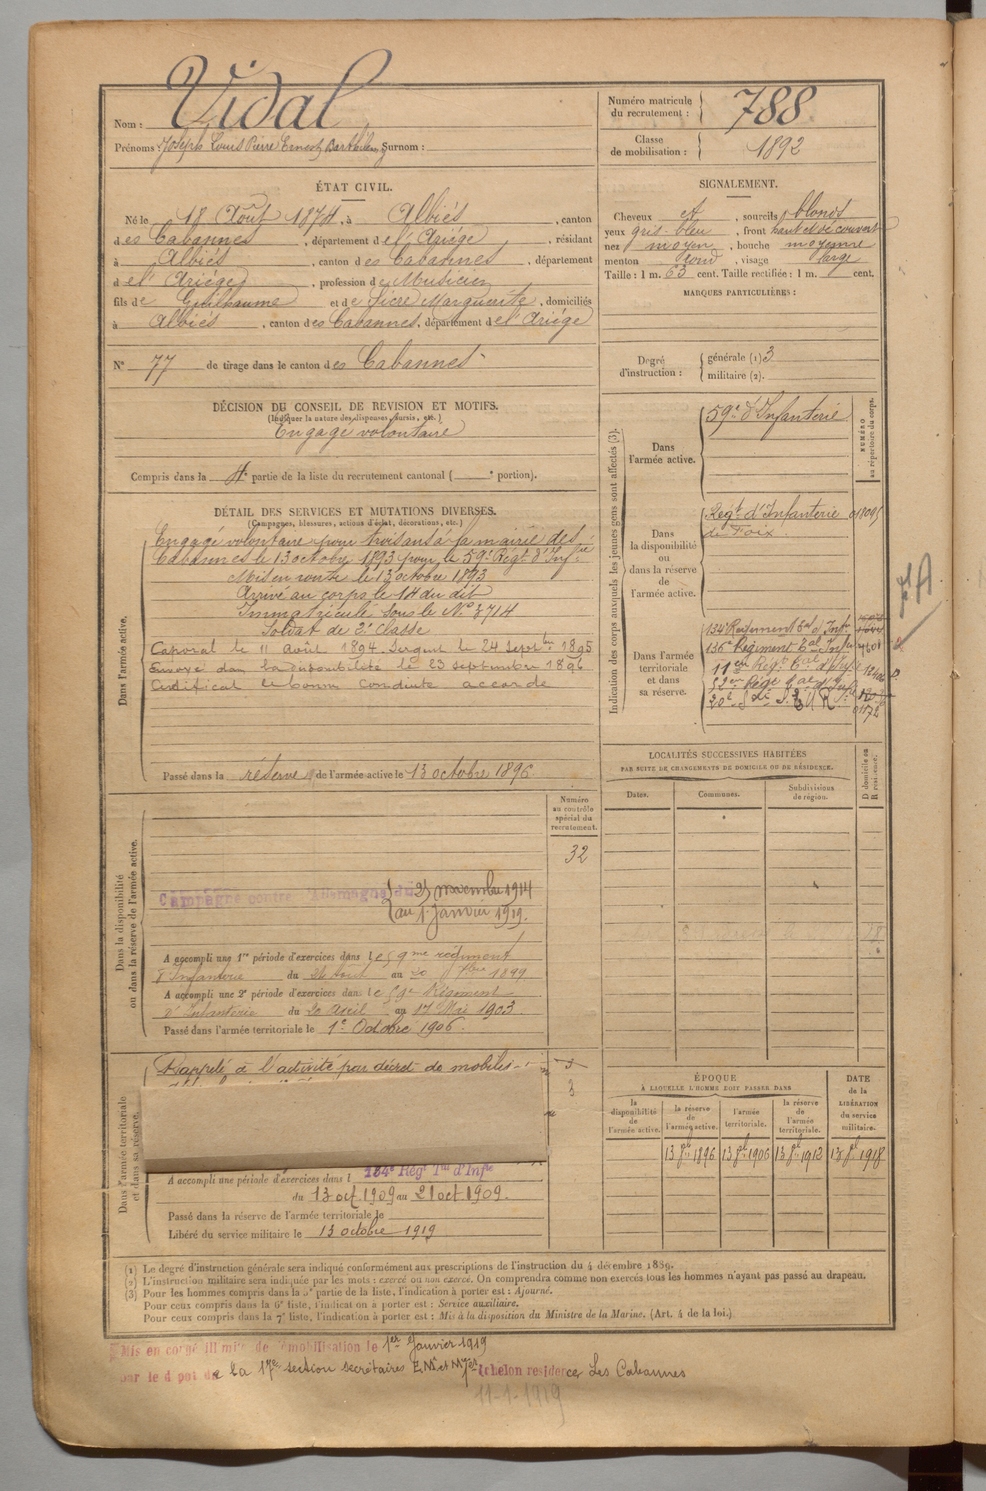 Nom : Vidal
Prénoms : Joseph Louis Pierre Ernest Barthélemy Surnom :
Numéro matricule du recrutement : 788
Classe de mobilisation : 1892
ÉTAT CIVIL.
Né le 18 Août 1874, à Albiés, canton
des Cabannes, département de l'Ariége, résidant
à Albiés, canton des Cabannes, département
de l'Ariége, profession de Musicien
fils de Guilhaume et de Sicre Marguerite, domiciliés
à Albiés, canton des Cabannes, département de l'Ariége
N° 77 de tirage dans le canton des Cabannes
SIGNALEMENT.
Cheveux et, sourcils blonds
yeux gris-bleu, front haut et découvert
nez moyen, bouche moyenne
menton rond, visage large
Taille : 1 m. 63 cent. Taille rectifiée : 1 m. cent.
MARQUES PARTICULIÈRES :
Degré d'instruction : générale (1) 3
militaire (2).
DÉCISION DU CONSEIL DE REVISION ET MOTIFS.
(Indiquer la nature des dispenses, sursis, etc.)
Engagé volontaire
Compris dans la 4e partie de la liste du recrutement cantonal ( e portion).
DÉTAIL DES SERVICES ET MUTATIONS DIVERSES.
(Campagnes, blessures, actions d'éclat, décorations, etc.)
Dans l'armée active.
Engagé volontaire pour trois ans à la mairie des
Cabannes le 13 octobre 1893 pour le 59e Régt d'Infie
Mis en route le 13 octobre 1893
Arrivé au corps le 14 du dit
Immatriculé sous le N° 3714
Soldat de 2e classe
Caporal le 11 Aout 1894. Sergent le 24 septbre 1895
Envoyé dans la disponibilité le 23 septembre 1896
Certificat de bonne conduite accordé
Passé dans la réserve de l'armée active le 13 octobre 1896
Indication des corps auxquels les jeunes gens sont affectés (3).
NUMÉRO au répertoire du corps.
Dans l'armée active.
59e d'Infanterie
Dans la disponibilité ou dans la réserve de l'armée active.
Regt d'Infanterie
de Foix
Dans l'armée territoriale et dans sa réserve.
134e Regiment tal d'Infie
136e Regiment tal d'Infie
LOCALITÉS SUCCESSIVES HABITÉES
PAR SUITE DE CHANGEMENTS DE DOMICILE OU DE RÉSIDENCE.
D domicile ou R résidence.
Dates.
Communes.
Subdivisions de région.
Dans la disponibilité ou dans la réserve de l'armée active.
Numéro au contrôle spécial du recrutement.
32
Campagne contre l'Allemagne du 25 novembre 1914
au 1er Janvier 1919.
A accompli une 1re période d'exercices dans le 59me régiment
d'Infanterie du 24 Aout au 20 7bre 1899
A accompli une 2e période d'exercices dans le 59e Régiment
d'Infanterie du 20 Avril au 17 Mai 1903
Passé dans l'armée territoriale le 1er Octobre 1906
Dans l'armée territoriale et dans sa réserve.
Rappelé à l'activité par décret de mobilis
3
A accompli une période d'exercices dans l 134e Regt Tal d'Infie
du 13 oct. 1909 au 21 oct 1909.
Passé dans la réserve de l'armée territoriale le
Libéré du service militaire le 13 octobre 1919
ÉPOQUE
À LAQUELLE L'HOMME DOIT PASSER DANS
la disponibilité de l'armée active.
la réserve de l'armée active.
l'armée territoriale.
la réserve de l'armée territoriale.
DATE de la LIBÉRATION du service militaire.
13 8bre 1896
13 8bre 1906
13 8bre 1912
13 8bre 1918
(1) Le degré d'instruction générale sera indiqué conformément aux prescriptions de l'instruction du 4 décembre 1889.
(2) L'instruction militaire sera indiquée par les mots : exercé ou non exercé. On comprendra comme non exercés tous les hommes n'ayant pas passé au drapeau.
(3) Pour les hommes compris dans la 5e partie de la liste, l'indication à porter est : Ajourné.
Pour ceux compris dans la 6e liste, l'indication à porter est : Service auxiliaire.
Pour ceux compris dans la 7e liste, l'indication à porter est : Mis à la disposition du Ministre de la Marine. (Art. 4 de la loi.)
Mis en congé illimité de démobilisation le 1er Janvier 1919
par le dépôt de la 17e section secrétaires E.M. et échelon résidence Les Cabannes
11-1-1919